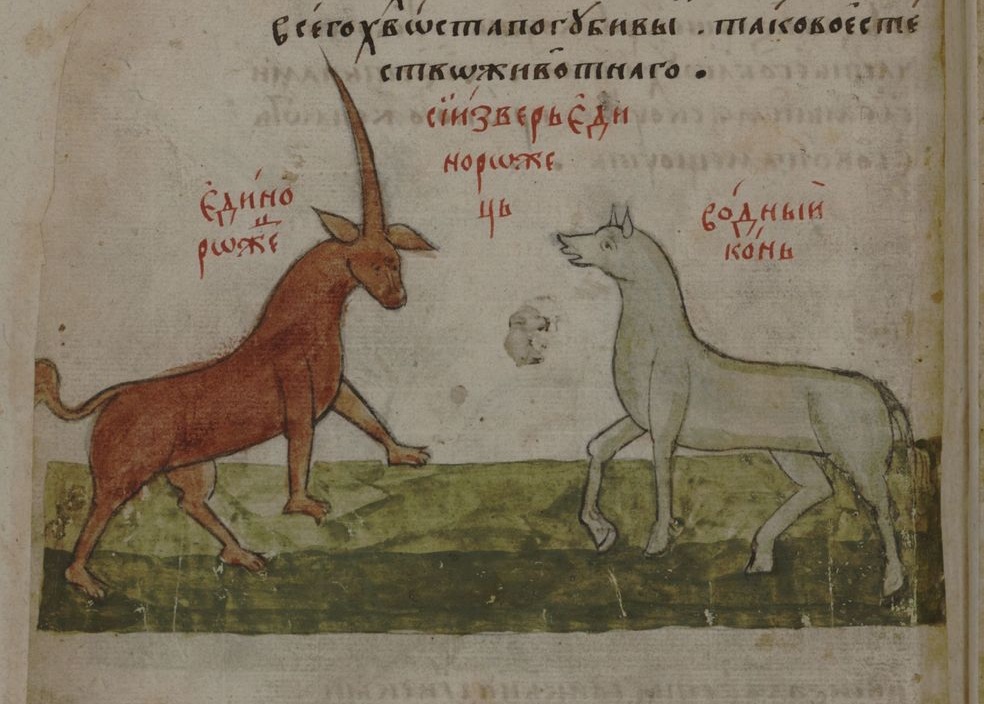 всегохвѡстапогꙋбивы . таковоесте
ствѡживотнаго .
сїизверьеди
норѡже
ць
едино
рѡже ц
водный
конь